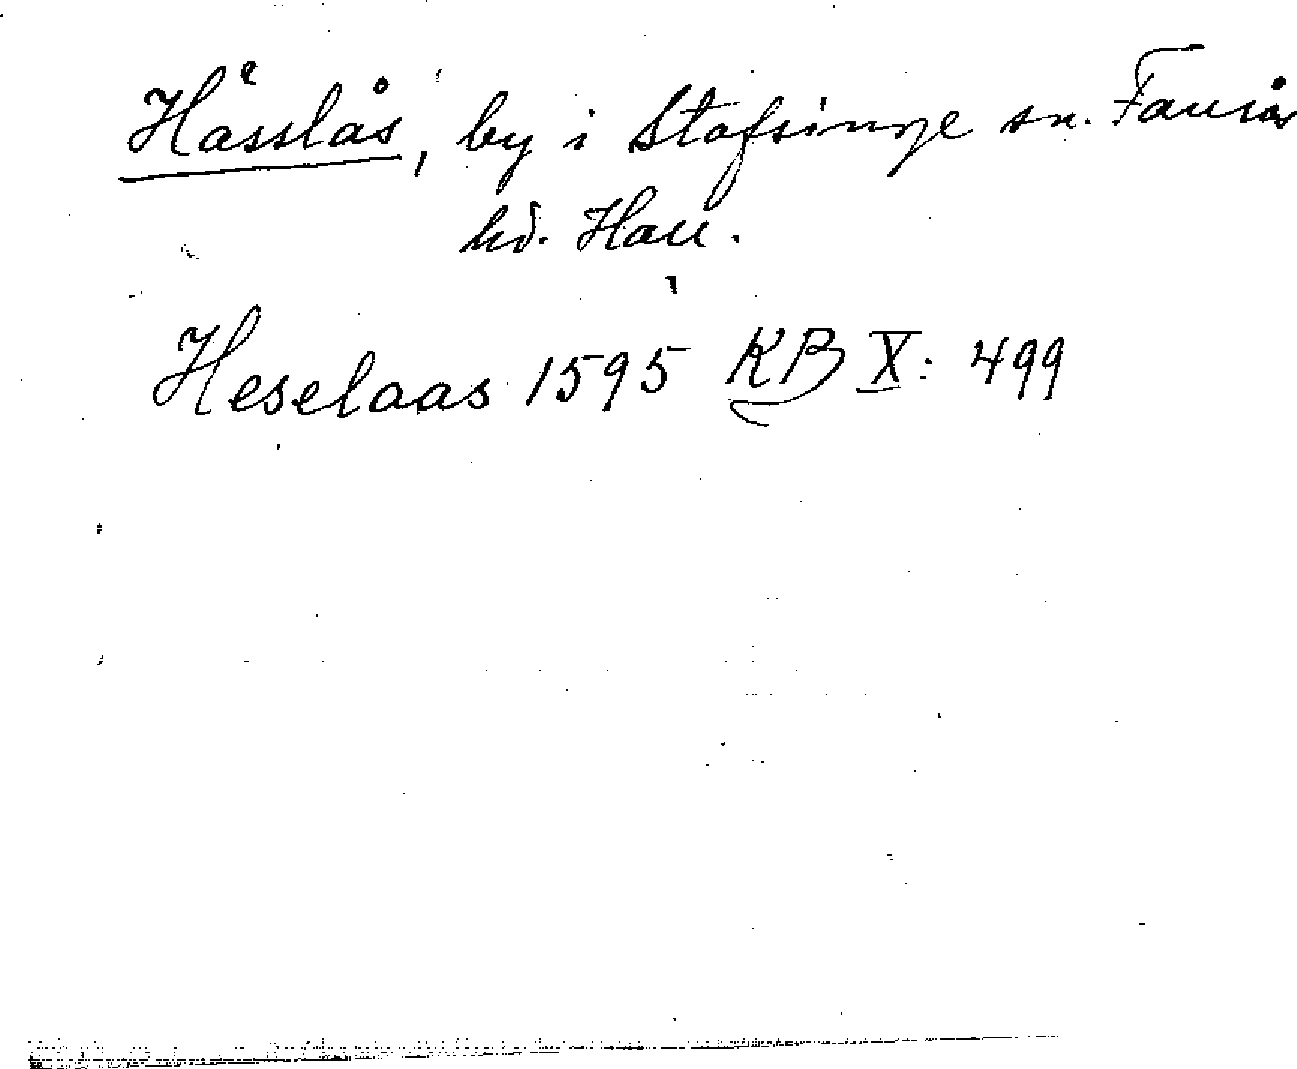 Hässlås, by i Stafsinge sn. Faurås
hd. Hall.
Heselaas 1595 KB X: 499